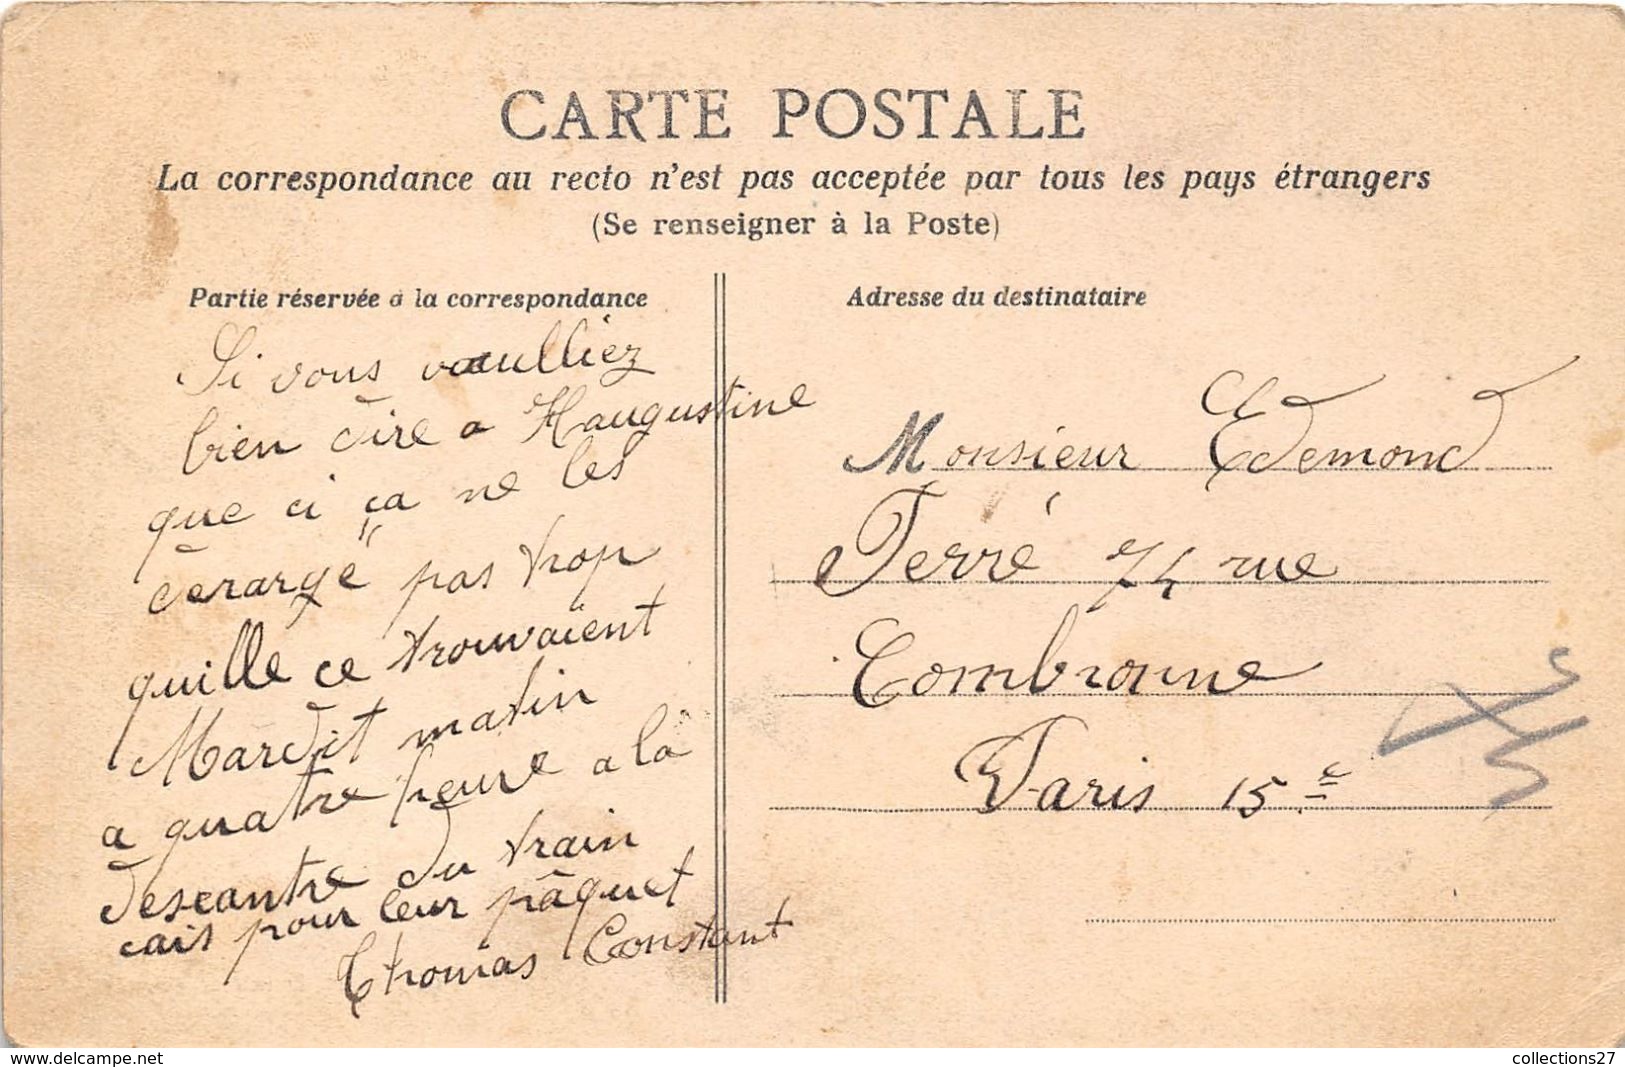 CARTE POSTALE
La correspondance au recto n'est pas acceptée par tous les pays étrangers
(Se renseigner à la Poste)
Partie réservée à la correspondance
Si vous vaulliez
bien dire a Haugustine
que ci ça ne les
derarge pas trop
quille ce trouvaient
Mardit matin
a quatre heure a la
descantre du train
cais pour leur pâquet
Thomas Constant
Adresse du destinataire
Monsieur Edemond
Ferré 74 rue
Combronne
Paris 15e
collections27